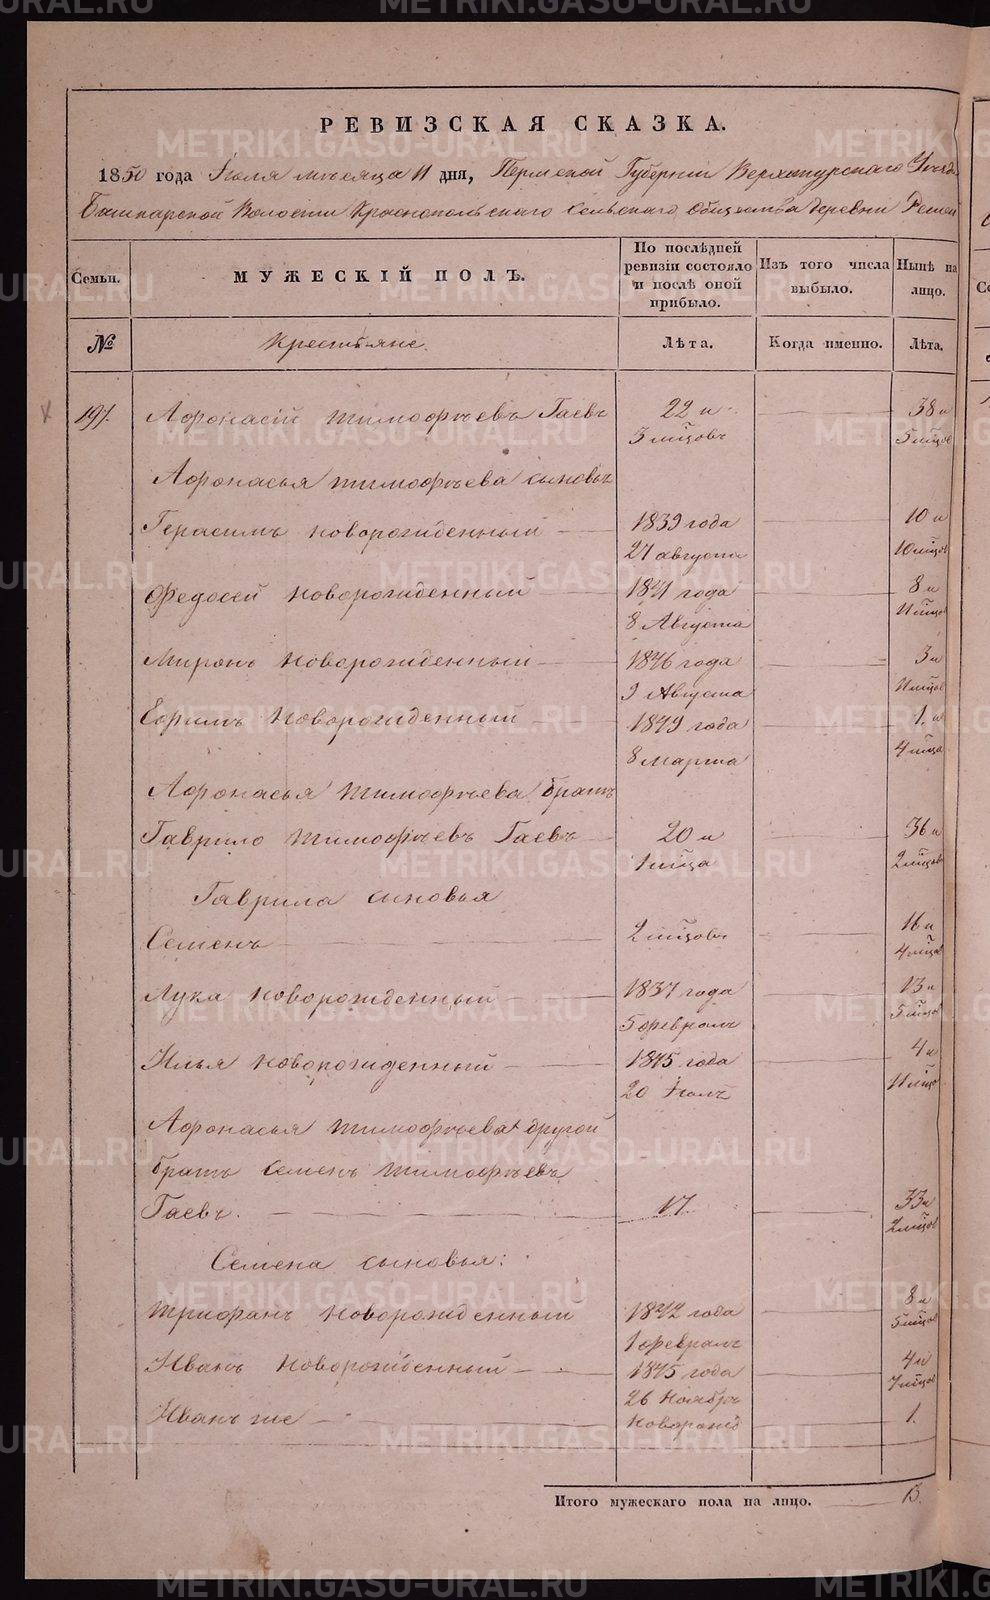 METRIKI.GASO-URAL.RU
РЕВИЗСКАЯ СКАЗКА.
1850 года Іюля мѣсяца 11 дня, Пермской Губерніи Верхотурскаго Уезда
Башкарской Волости Краснопольскаго Сельскаго Общества деревни
Семьи.
МУЖЕСКІЙ ПОЛЪ.
По послѣдней ревизіи состояло и послѣ оной прибыло.
Изъ того числа выбыло.
Нынѣ на лицо.
№
Крестьяне.
Лѣта.
Когда именно.
Лѣта.
197. Афонасій Тимофѣевъ Гаевъ 22 и 38 и
3 мѣсцовъ 5 мѣсцов
Афонасья Тимофѣева сыновья
Герасимъ новорожденный 1839 года 10 и
27 августа 10 мѣсцов
Федосей новорожденный 1841 года 8 и
8 Августа 11 мѣсцов
Миронъ новорожденный 1846 года 3 и
9 Августа 11 мѣсцов
Ефимъ новорожденный 1849 года 1. и
8 марта 4 мѣсца
Афонасья Тимофѣева братъ
Гаврило Тимофѣевъ Гаевъ 20 и 36 и
1 мѣсца 2 мѣсцов
Гаврила сыновья
Семенъ 2 мѣсцовъ 16 и
4 мѣсцов
Лука новорожденный 1837 года 13 и
5 февраль 5 мѣсцов
Илья новорожденный 1845 года 4 и
20 Іюль 11 мѣсцов
Афонасья Тимофѣева другой
братъ Семенъ Тимофѣевъ
Гаевъ. 17. 33 и
2 мѣсцов
Семена сыновья:
Трифанъ новорожденный 1842 года 8 и
1 февраль 5 мѣсцов
Иванъ новорожденный 1845 года 4 и
26 Ноябрь 7 мѣсцов
Иванъ же новорожд 1.
Итого мужескаго пола на лицо.